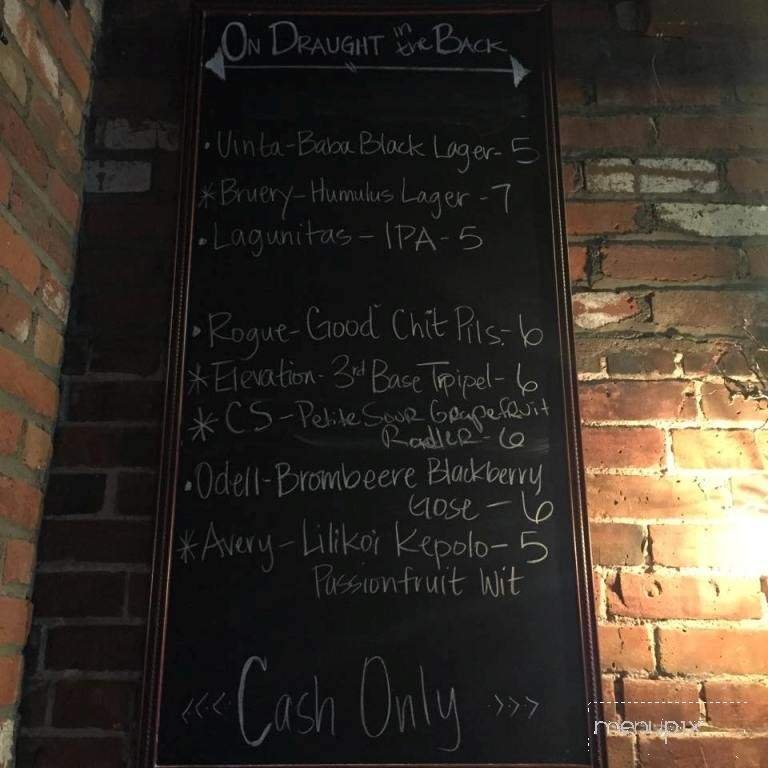 On Draught in the Back
• Uinta-Baba Black Lager- 5
* Bruery-Humulus Lager - 7
• Lagunitas - IPA - 5
• Rogue-Good Chit Pils.- 6
* Elevation- 3rd Base Tripel- 6
* CS - Petite Sour Grapefruit
Radler - 6
• Odell-Brombeere Blackberry
Gose - 6
* Avery-Lilikoi Kepolo- 5
Passionfruit Wit
<<< Cash Only >>>
menupix